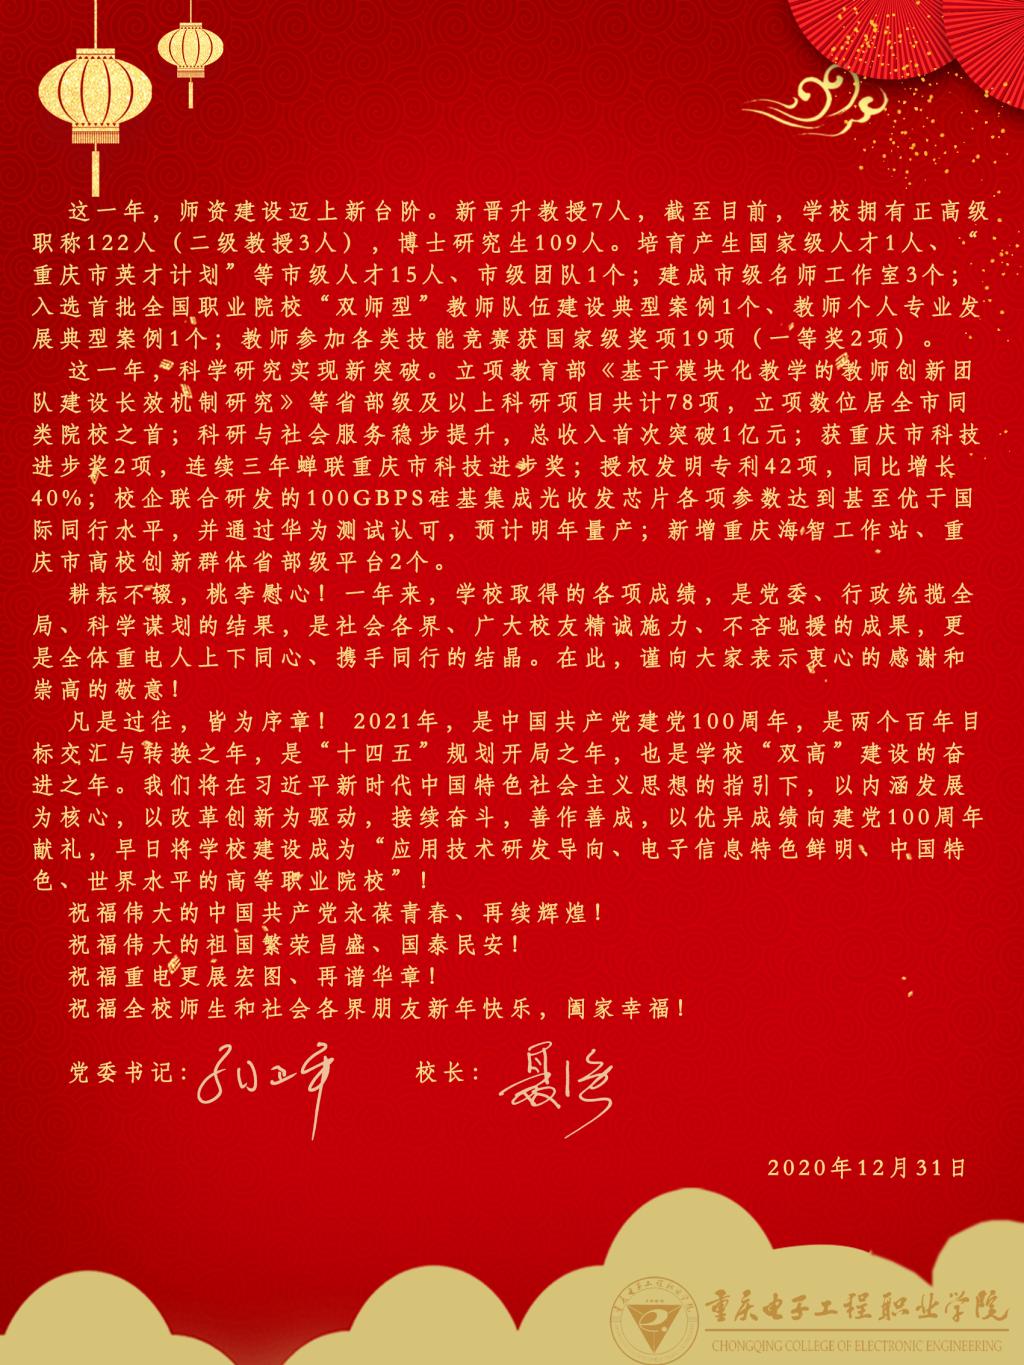 这一年，师资建设迈上新台阶。新晋升教授7人，截至目前，学校拥有正高级
职称122人（二级教授3人），博士研究生109人。培育产生国家级人才1人、“
重庆市英才计划”等市级人才15人、市级团队1个；建成市级名师工作室3个；
入选首批全国职业院校“双师型”教师队伍建设典型案例1个、教师个人专业发
展典型案例1个；教师参加各类技能竞赛获国家级奖项19项（一等奖2项）。
这一年，科学研究实现新突破。立项教育部《基于模块化教学的教师创新团
队建设长效机制研究》等省部级及以上科研项目共计78项，立项数位居全市同
类院校之首；科研与社会服务稳步提升，总收入首次突破1亿元；获重庆市科技
进步奖2项，连续三年蝉联重庆市科技进步奖；授权发明专利42项，同比增长
40%；校企联合研发的100GBPS硅基集成光收发芯片各项参数达到甚至优于国
际同行水平，并通过华为测试认可，预计明年量产；新增重庆海智工作站、重
庆市高校创新群体省部级平台2个。
耕耘不辍，桃李慰心！一年来，学校取得的各项成绩，是党委、行政统揽全
局、科学谋划的结果，是社会各界、广大校友精诚施力、不吝驰援的成果，更
是全体重电人上下同心、携手同行的结晶。在此，谨向大家表示衷心的感谢和
崇高的敬意！
凡是过往，皆为序章！ 2021年，是中国共产党建党100周年，是两个百年目
标交汇与转换之年，是“十四五”规划开局之年，也是学校“双高”建设的奋
进之年。我们将在习近平新时代中国特色社会主义思想的指引下，以内涵发展
为核心，以改革创新为驱动，接续奋斗，善作善成，以优异成绩向建党100周年
献礼，早日将学校建设成为“应用技术研发导向、电子信息特色鲜明、中国特
色、世界水平的高等职业院校”！
祝福伟大的中国共产党永葆青春、再续辉煌！
祝福伟大的祖国繁荣昌盛、国泰民安！
祝福重电更展宏图、再谱华章！
祝福全校师生和社会各界朋友新年快乐，阖家幸福！
党委书记：孙卫平 校长：聂强
2020年12月31日
重庆电子工程职业学院
CHONGQING COLLEGE OF ELECTRONIC ENGINEERING